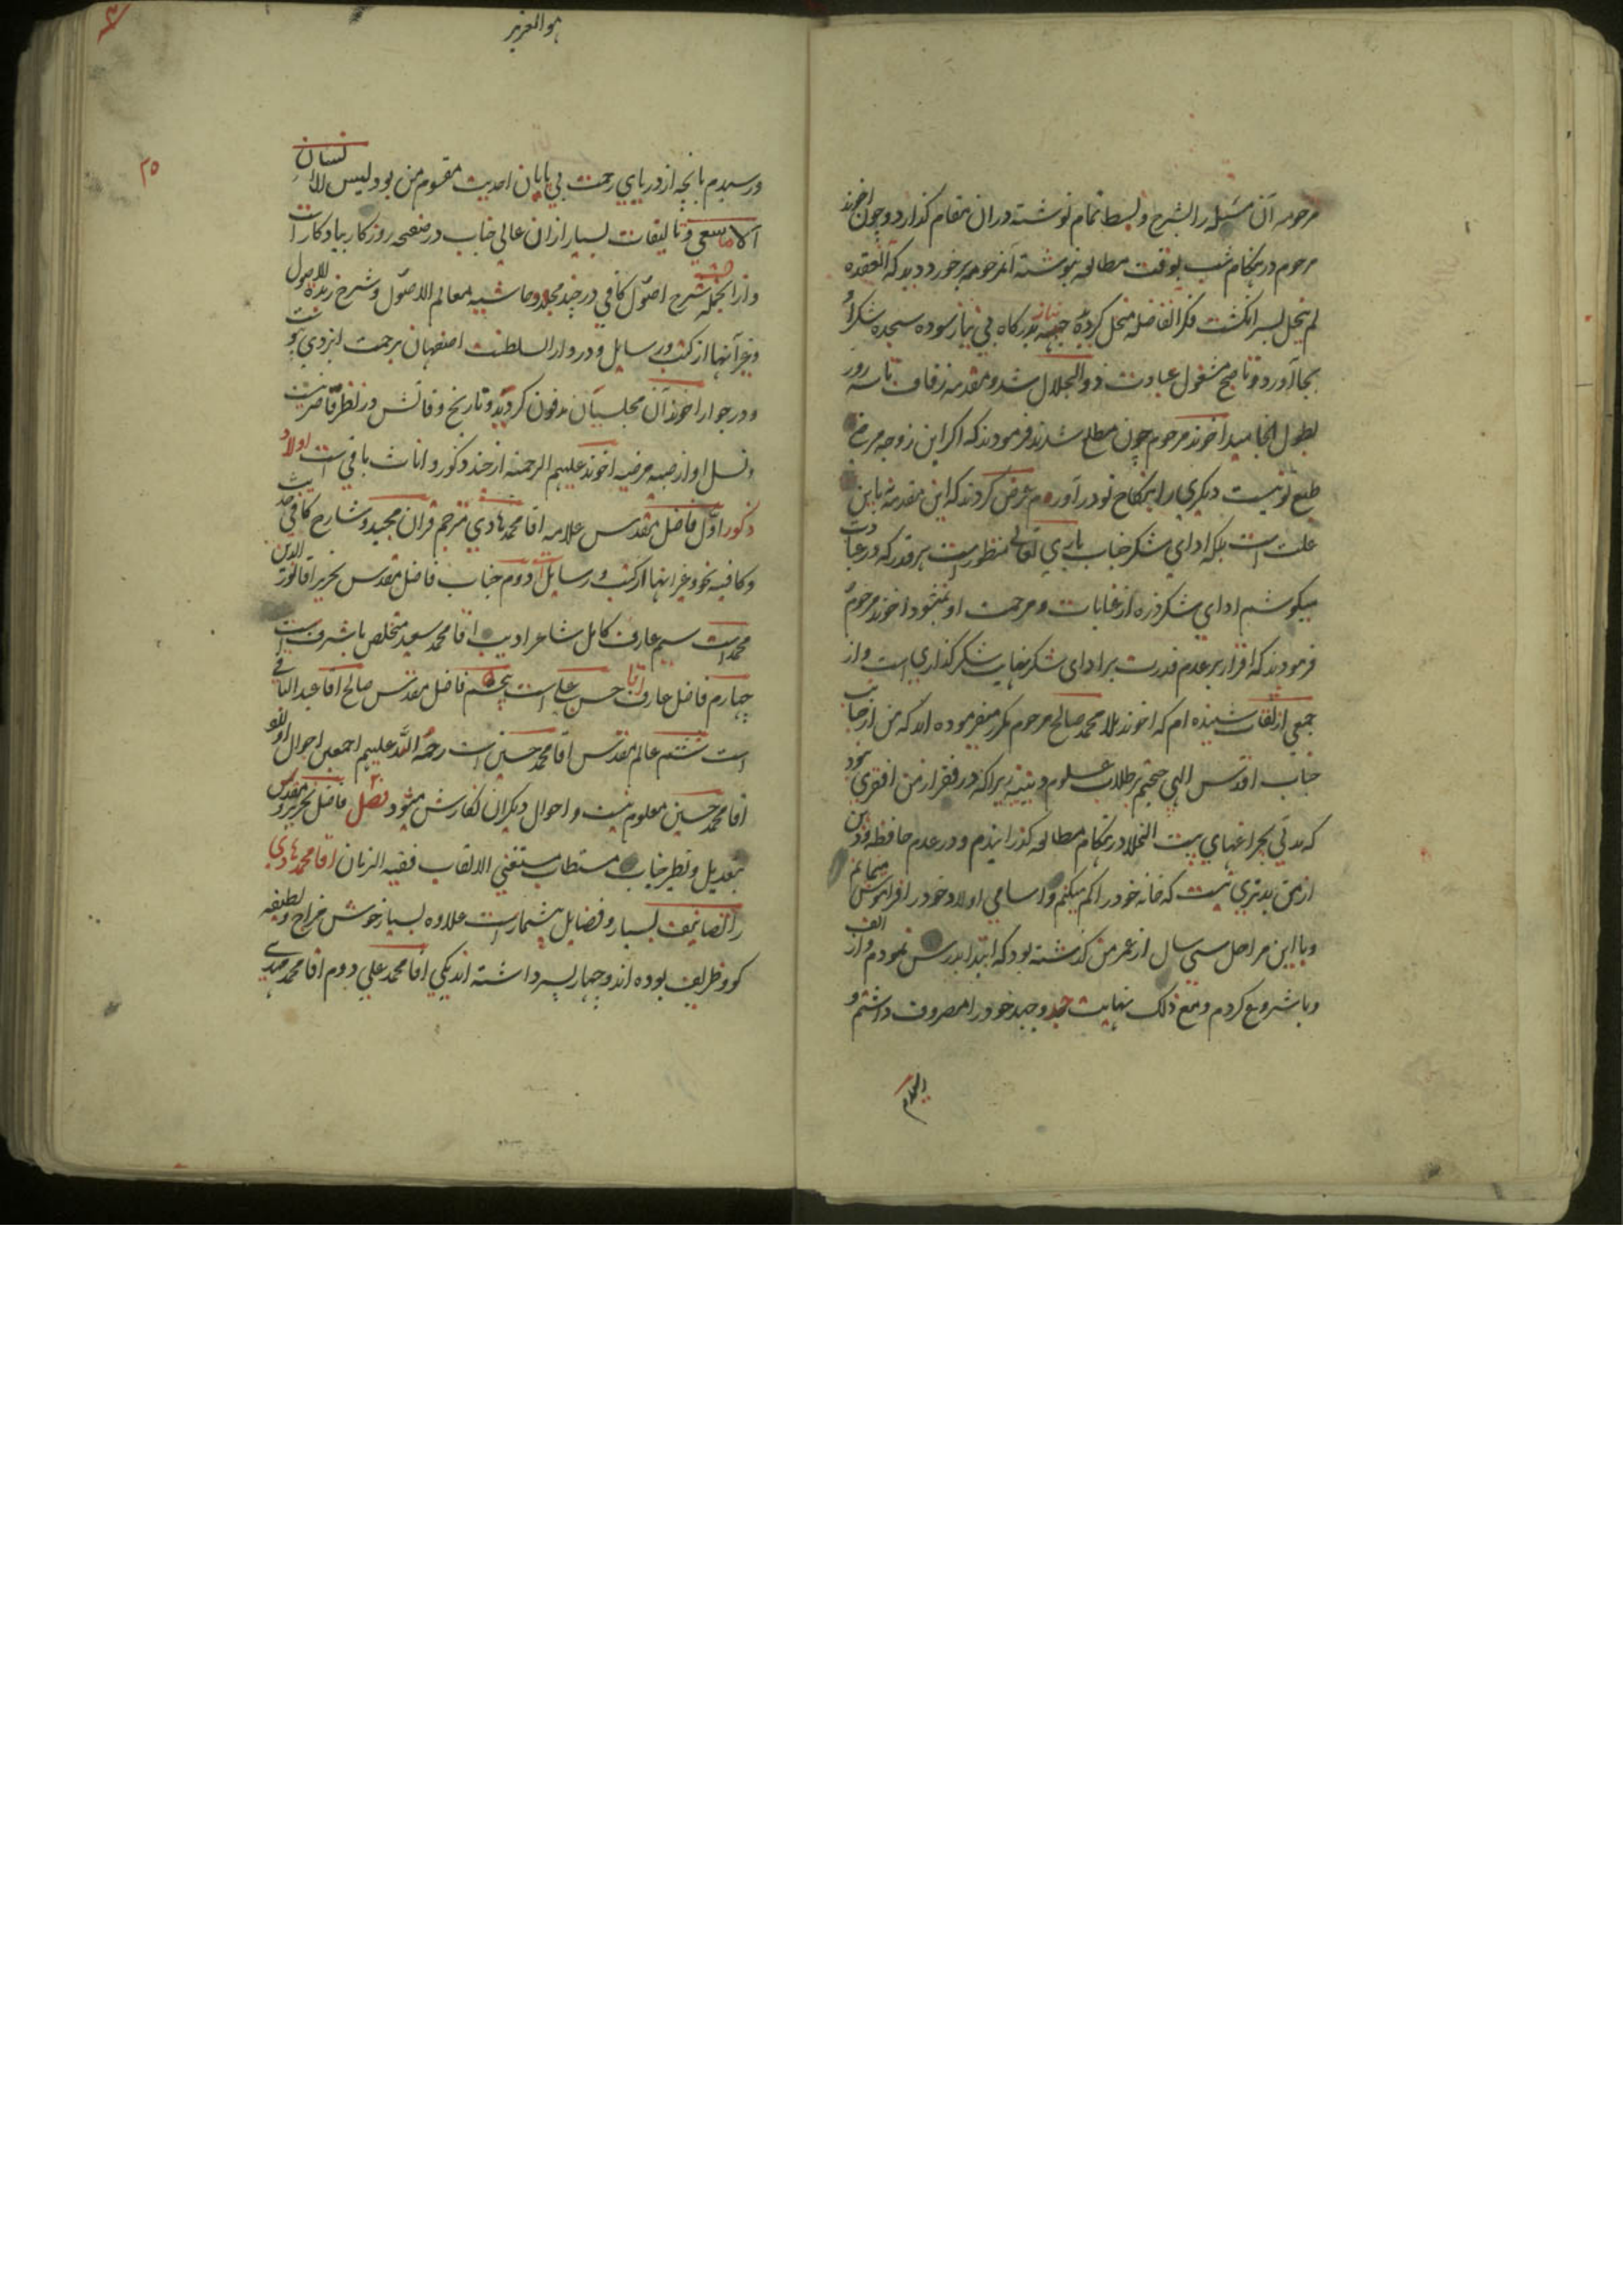 مرحومه آن مسئله را بشرح و بسط تمام نوشته در ان مقام گذارد و چون اخوند
مرحوم در هنگام شب بوقت مطالعه بنوشته آنمرحومه برخورد دید که آنعقده
لم ینحل بسر انگشت فکر انفاضله منحل گردیده جبهه نیاز بدرگاه بی نیاز سوده سجده شکر
بجا آورد و تا صبح مشغول عبادت ذو الجلال شد و مقدمه زفاف تا سه روز
بطول انجامید اخوند مرحوم چون مطلع شدند فرمودند که اکر این زوجه مرضی
طبع تو نیست دیکری را بنکاح تو در آورم عرض کردند که این مقدمه باین
علت است بلکه ادای شکر جناب باری تعالی منظور است هر قدر که در عبادت
میکوشم ادای شکر ذره از عنایات و مرحمت او نمیشود اخوند مرحوم
فرمودند که اقرار بر عدم قدرت بر ادای شکر نهایت شکر گذاری است و از
جمعی از ثقات شنیده ام که اخوند ملا محمد صالح مرحوم مکرر میفرموده اند که من از جانب
جناب اقدس الهی حجتم بر طلاب علوم دینیه زیرا که در فقر از من افقری نبود
که مدتی بچراغهای بیت الخلا در هنگام مطالعه گذرانیدم و در عدم حافظه و ذهن
از من بدتری نیست که خانه خود را کم میکنم و اسامی اولاد خود را فراموش مینمایم
و با این مراحل سی سال از عمر من کذشته بود که ابتدا بدرس نمودم و از الف
و با شروع کردم و مع ذلک نهایت جد و جهد خود را مصروف داشتم و
هو العزیز
۲۵
و رسیدم بانچه از دریای رحمت بی پایان احدیت مقسوم من بود لیس للانسان
الا ما سعی و تالیفات بسیار از ان عالی جناب در صفحه روزکار بیادکار است
و از انجمله شرح اصول کافی در چند مجلد و حاشیه معالم الاصول و شرح زبدة الاصول
و غیر آنها از کتب و رسایل و در دار السلطنت اصفهان برحمت ایزدی پیوست
و در جوار اخوند آن مجلسیان مدفون کردید و تاریخ وفاتش در نظر قاصر نیست
و نسل او از صبیه مرضیه اخوند علیهم الرحمه از چند ذکور و اناث باقی است اولاد
ذکور اول فاضل مقدس علامه اقا محمد هادی مترجم قران مجید و شارح کافی
و کافیه نحو و غیر انها از کتب و رسایل دوم جناب فاضل مقدس نحریر اقا نور الدین
محمد است سیم عارف کامل شاعر ادیب اقا محمد سعید متخلص باشرف است
چهارم فاضل عارف اقا حسن علی است پنجم فاضل مقدس صالح اقا عبد الباقی
است ششم عالم مقدس اقا محمد حسین است رحمة الله علیهم اجمعین احوال اولاد
اقا محمد حسین معلوم نیست و احوال دیکران نکارش میشود فصل فاضل نحریر و مقدس
بیعدیل و نظیر جناب مستطاب مستغنی الالقاب فقیه الزمان اقا محمد هادی
را تصانیف بسیار و فضایل بیشمار است علاوه بسیار خوش مزاج و لطیفه
کو و ظریف بوده اند و چهار پسر داشته اند یکی اقا محمد علی دوم اقا محمد مهدی